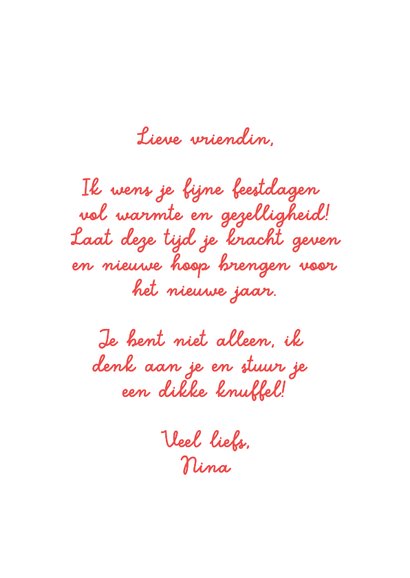 Lieve vriendin,
Ik wens je fijne feestdagen
vol warmte en gezelligheid!
Laat deze tijd je kracht geven
en nieuwe hoop brengen voor
het nieuwe jaar.
Je bent niet alleen, ik
denk aan je en stuur je
een dikke knuffel!
Veel liefs,
Nina